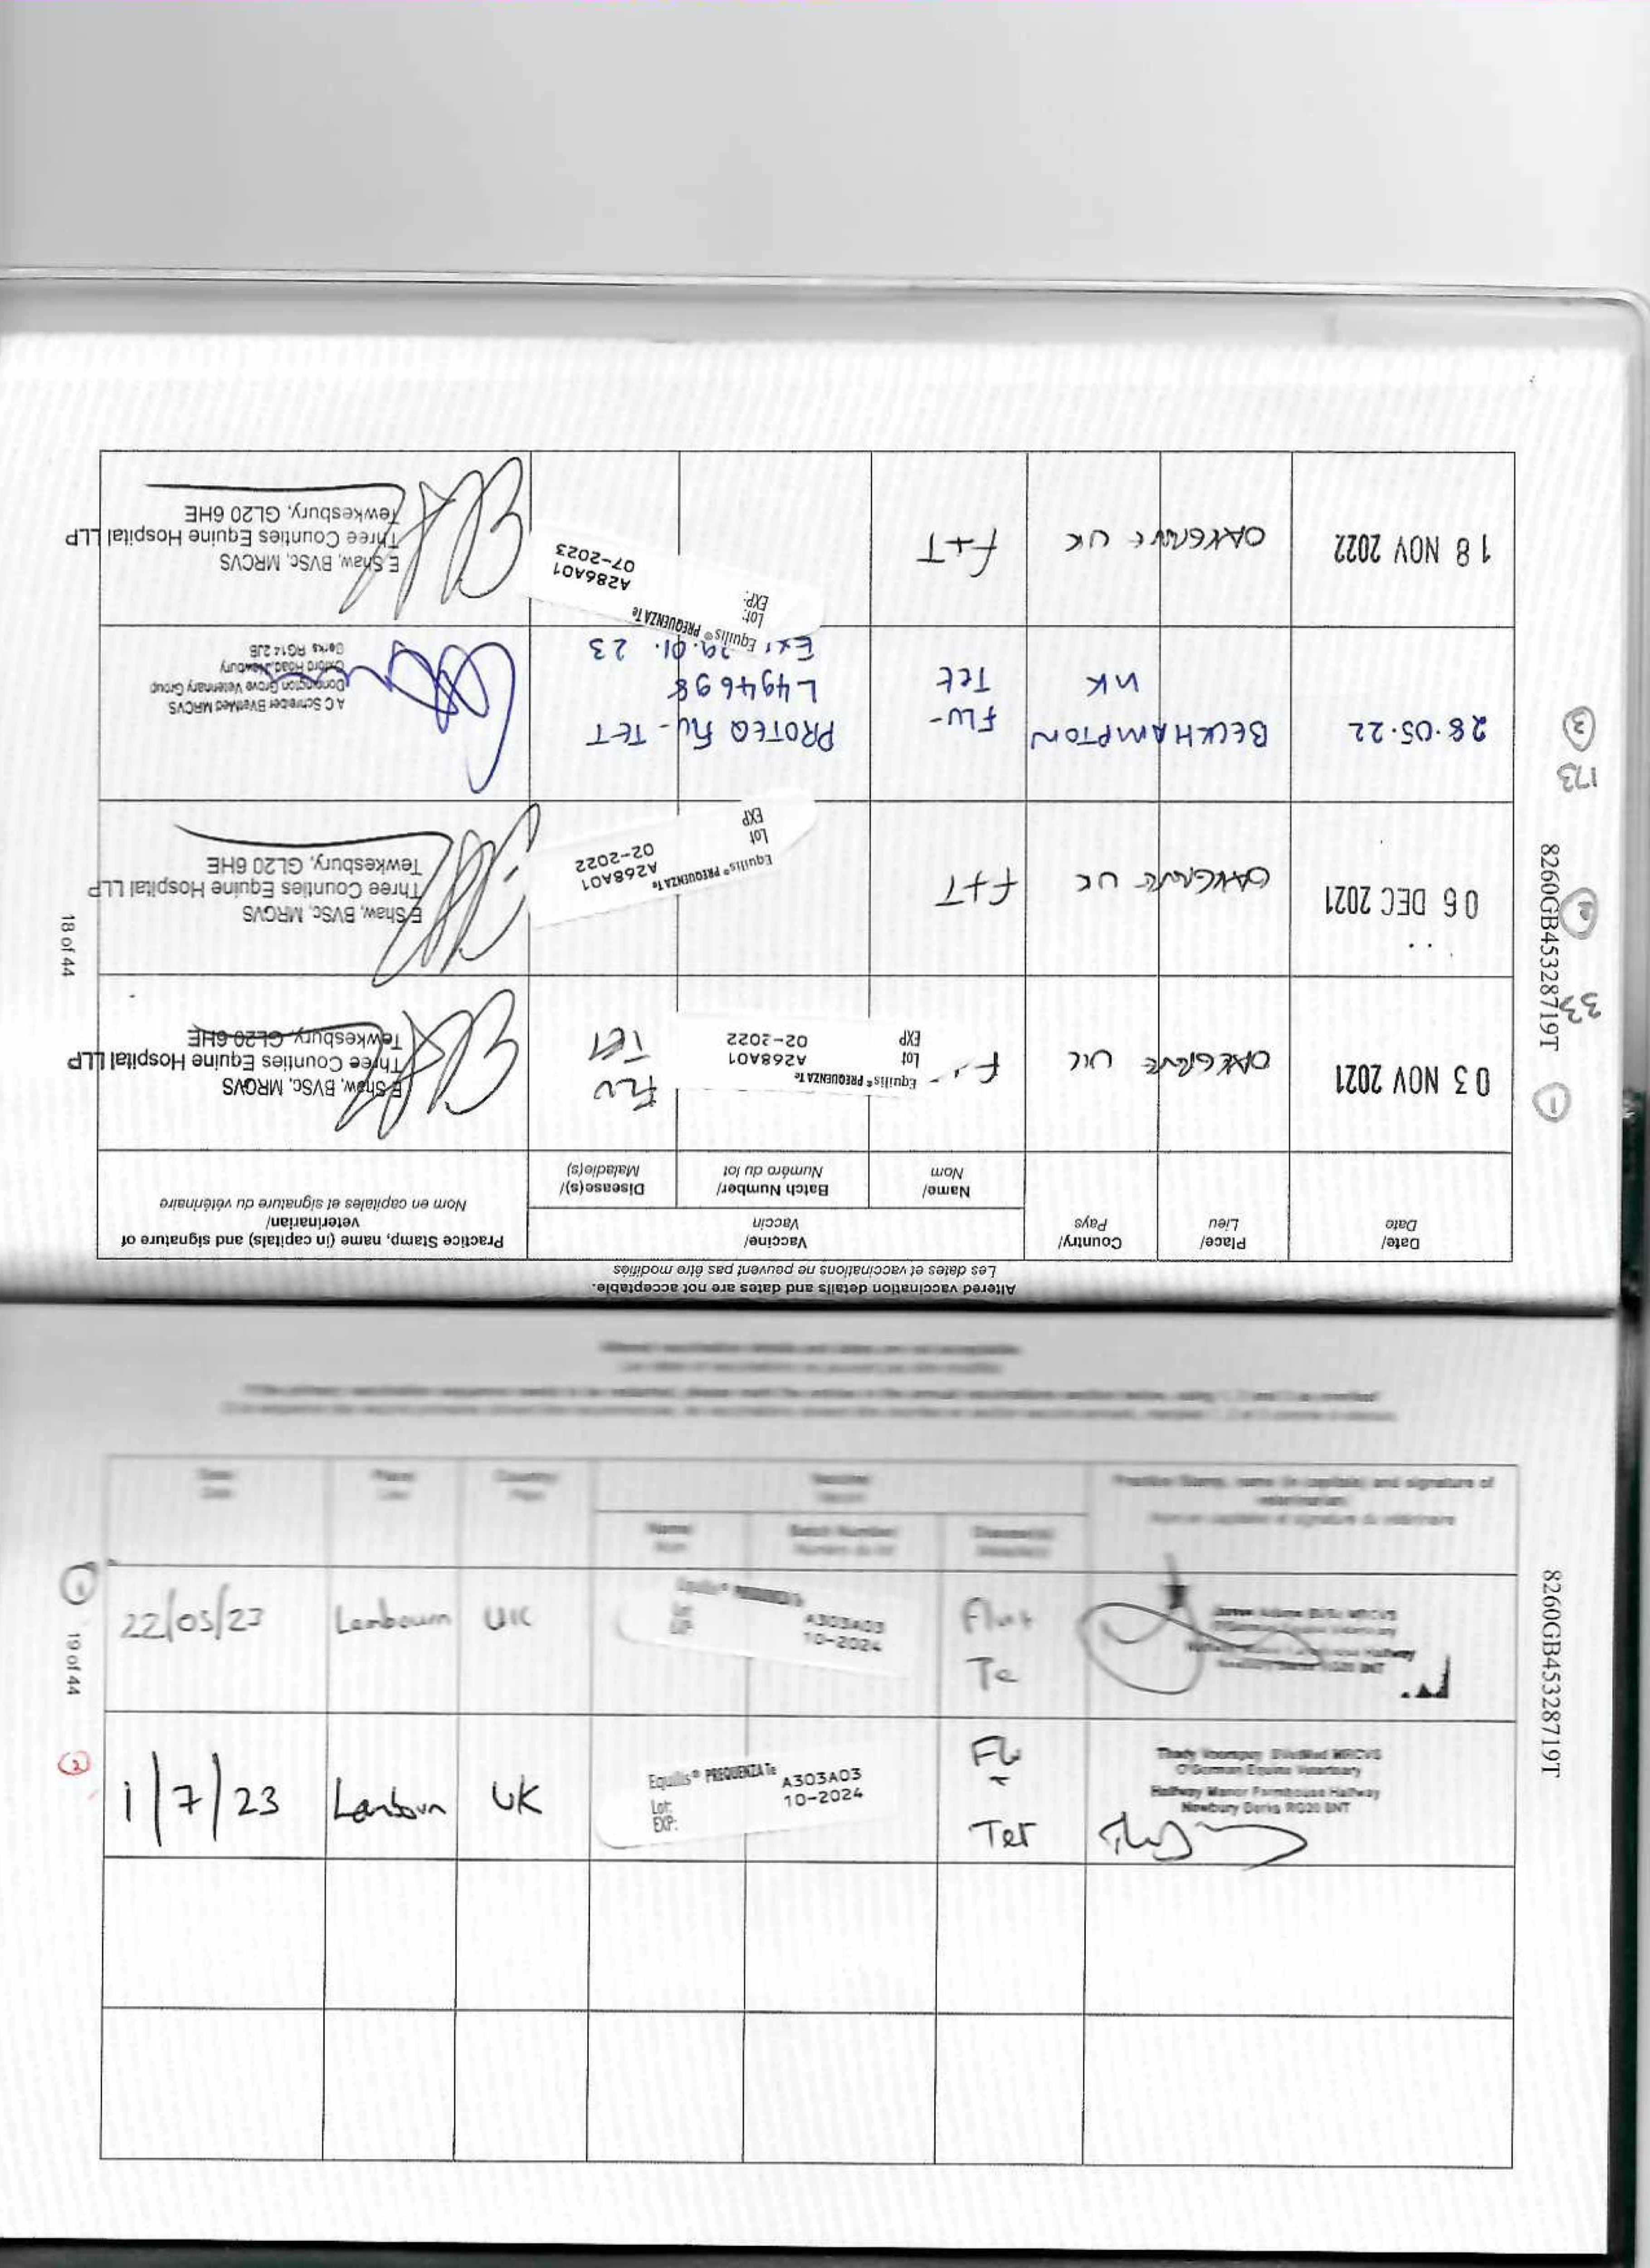 Altered vaccination details and dates are not acceptable.
Les dates et vaccinations ne peuvent pas être modifiés
Date/
Date
Place/
Lieu
Country/
Pays
Vaccine/
Vaccin
Practice Stamp, name (in capitals) and signature of
veterinarian/
Nom en capitales et signature du vétérinaire
Name/
Nom
Batch Number/
Numéro du lot
Disease(s)/
Maladie(s)
1
03 NOV 2021
OAKGROVE UK
Equilis® PREQUENZA Te
Lot A268A01
EXP 02-2022
FLU
TET
E Shaw, BVSc, MRCVS
Three Counties Equine Hospital LLP
Tewkesbury, GL20 6HE
33
2
06 DEC 2021
OAKGROVE UK
F+T
Equilis® PREQUENZA Te
Lot A268A01
EXP 02-2022
E Shaw, BVSc, MRCVS
Three Counties Equine Hospital LLP
Tewkesbury, GL20 6HE
173
3
28.05.22
BECKHAMPTON
UK
FLU-
TET
PROTEQ FLU-TET
L494698
Ex: 29.01.23
A C Schreiber BVetMed MRCVS
Donnington Grove Veterinary Group
Oxford Road, Newbury
Berks RG14 2JB
18 NOV 2022
OAKGROVE UK
F+T
Equilis® PREQUENZA Te
Lot: A286A01
EXP: 07-2023
E Shaw, BVSc, MRCVS
Three Counties Equine Hospital LLP
Tewkesbury, GL20 6HE
8260GB45328719T
18 of 44
Altered vaccination details and dates are not acceptable.
Les dates et vaccinations ne peuvent pas être modifiés
Date
Date
Place
Lieu
Country
Pays
Vaccine
Vaccin
Practice Stamp, name (in capitals) and signature of
veterinarian
Nom en capitales et signature du vétérinaire
Name
Nom
Batch Number
Numéro du lot
Disease(s)
Maladie(s)
1
22/05/23
Lambourn
UK
Equilis® PREQUENZA Te
Lot: A303A03
EXP: 10-2024
Flu+
Te
MRCVS
O'Gorman Equine Veterinary
Halfway
Newbury Berks RG20 8NT
2
1/7/23
Lambourn
UK
Equilis® PREQUENZA Te
Lot: A303A03
EXP: 10-2024
Flu
Tet
BVetMed MRCVS
O'Gorman Equine Veterinary
Halfway Manor Farmhouse Halfway
Newbury Berks RG20 8NT
8260GB45328719T
19 of 44